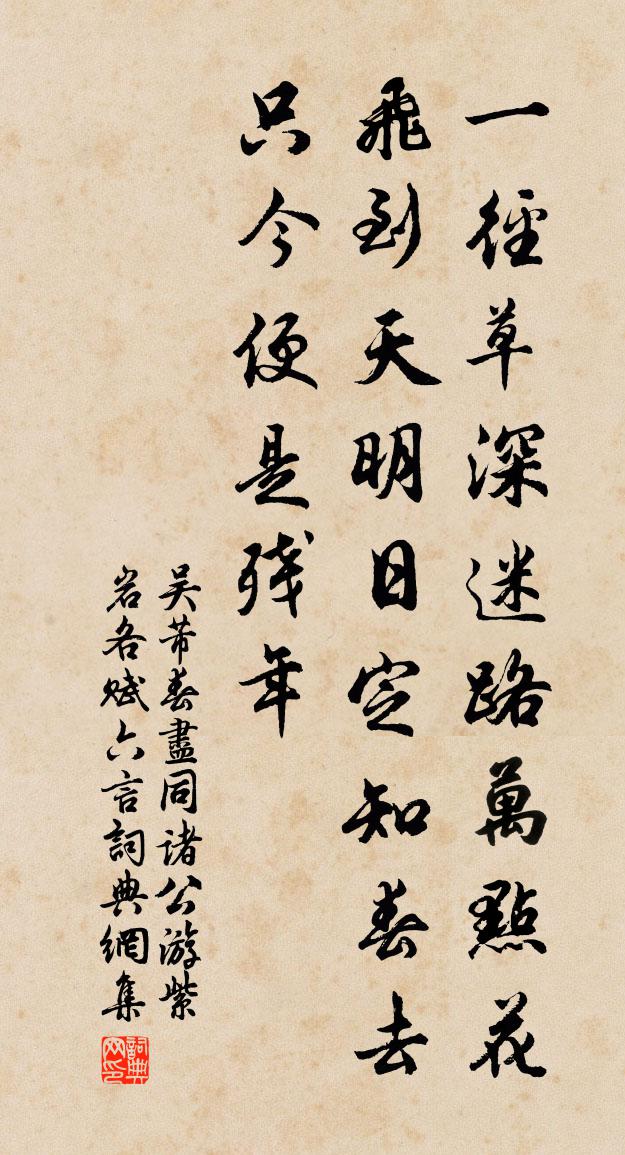 一徑草深迷路萬點花
飛到天明日定知春去
只今便是殘年
吴芾春盡同诸公游紫
岩各赋六言詞典網集
詞典网印